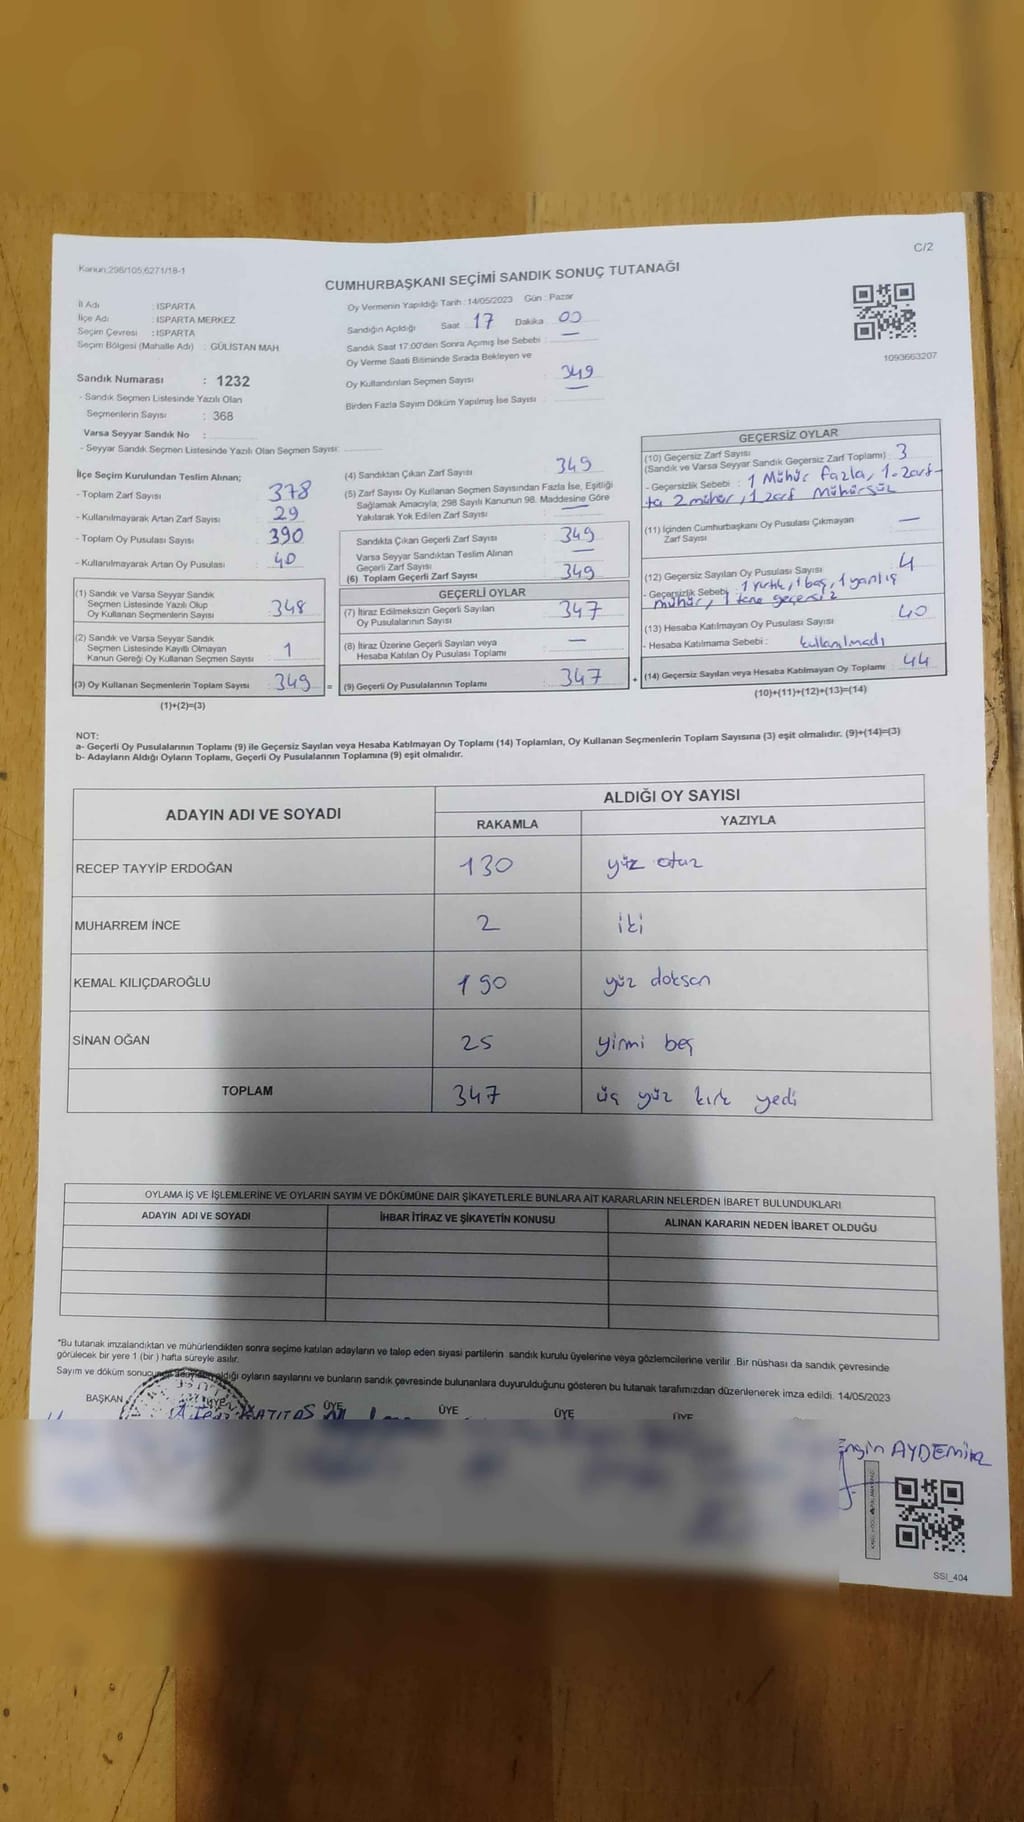 C/2
Kanun:298/105,6271/18-1
CUMHURBAŞKANI SEÇİMİ SANDIK SONUÇ TUTANAĞI
İl Adı : ISPARTA
İlçe Adı : ISPARTA MERKEZ
Seçim Çevresi : ISPARTA
Seçim Bölgesi (Mahalle Adı) : GÜLİSTAN MAH.
Sandık Numarası : 1232
- Sandık Seçmen Listesinde Yazılı Olan
Seçmenlerin Sayısı : 368
Varsa Seyyar Sandık No :
- Seyyar Sandık Seçmen Listesinde Yazılı Olan Seçmen Sayısı:
Oy Vermenin Yapıldığı Tarih : 14/05/2023 Gün : Pazar
Sandığın Açıldığı Saat 17 Dakika 00
Sandık Saat 17:00'den Sonra Açımış İse Sebebi : —
Oy Verme Saati Bitiminde Sırada Bekleyen ve
Oy Kullandırılan Seçmen Sayısı 349
Birden Fazla Sayım Döküm Yapılmış İse Sayısı —
1093663207
İlçe Seçim Kurulundan Teslim Alınan;
- Toplam Zarf Sayısı 378
- Kullanılmayarak Artan Zarf Sayısı 29
- Toplam Oy Pusulası Sayısı 390
- Kullanılmayarak Artan Oy Pusulası 40
(1) Sandık ve Varsa Seyyar Sandık
Seçmen Listesinde Yazılı Olup
Oy Kullanan Seçmenlerin Sayısı 348
(2) Sandık ve Varsa Seyyar Sandık
Seçmen Listesinde Kayıtlı Olmayan
Kanun Gereği Oy Kullanan Seçmen Sayısı 1
(3) Oy Kullanan Seçmenlerin Toplam Sayısı 349 =
(1)+(2)=(3)
(4) Sandıktan Çıkan Zarf Sayısı 349
(5) Zarf Sayısı Oy Kullanan Seçmen Sayısından Fazla İse, Eşitliği
Sağlamak Amacıyla; 298 Sayılı Kanunun 98. Maddesine Göre
Yakılarak Yok Edilen Zarf Sayısı —
Sandıkta Çıkan Geçerli Zarf Sayısı 349
Varsa Seyyar Sandıktan Teslim Alınan
Geçerli Zarf Sayısı —
(6) Toplam Geçerli Zarf Sayısı 349
GEÇERLİ OYLAR
(7) İtiraz Edilmeksizin Geçerli Sayılan
Oy Pusulalarının Sayısı 347
(8) İtiraz Üzerine Geçerli Sayılan veya
Hesaba Katılan Oy Pusulası Toplamı —
(9) Geçerli Oy Pusulalarının Toplamı 347 +
GEÇERSİZ OYLAR
(10) Geçersiz Zarf Sayısı
(Sandık ve Varsa Seyyar Sandık Geçersiz Zarf Toplamı) 3
- Geçersizlik Sebebi : 1 Mühür fazla, 1 zarf-
ta 2 mühür, 1 zarf mühürsüz
(11) İçinden Cumhurbaşkanı Oy Pusulası Çıkmayan
Zarf Sayısı —
(12) Geçersiz Sayılan Oy Pusulası Sayısı 4
- Geçersizlik Sebebi : 1 yırtık, 1 boş, 1 yanlış
mühür, 1 tane geçersiz
(13) Hesaba Katılmayan Oy Pusulası Sayısı 40
- Hesaba Katılmama Sebebi : kullanılmadı
(14) Geçersiz Sayılan veya Hesaba Katılmayan Oy Toplamı 44
(10)+(11)+(12)+(13)=(14)
NOT:
a- Geçerli Oy Pusulalarının Toplamı (9) ile Geçersiz Sayılan veya Hesaba Katılmayan Oy Toplamı (14) Toplamları, Oy Kullanan Seçmenlerin Toplam Sayısına (3) eşit olmalıdır. (9)+(14)=(3)
b- Adayların Aldığı Oyların Toplamı, Geçerli Oy Pusulalarının Toplamına (9) eşit olmalıdır.
ADAYIN ADI VE SOYADI ALDIĞI OY SAYISI
RAKAMLA YAZIYLA
RECEP TAYYİP ERDOĞAN 130 yüz otuz
MUHARREM İNCE 2 iki
KEMAL KILIÇDAROĞLU 190 yüz doksan
SİNAN OĞAN 25 yirmi beş
TOPLAM 347 üç yüz kırk yedi
OYLAMA İŞ VE İŞLEMLERİNE VE OYLARIN SAYIM VE DÖKÜMÜNE DAİR ŞİKAYETLERLE BUNLARA AİT KARARLARIN NELERDEN İBARET BULUNDUKLARI
ADAYIN ADI VE SOYADI İHBAR İTİRAZ VE ŞİKAYETİN KONUSU ALINAN KARARIN NEDEN İBARET OLDUĞU
*Bu tutanak imzalandıktan ve mühürlendikten sonra seçime katılan adayların ve talep eden siyasi partilerin sandık kurulu üyelerine veya gözlemcilerine verilir. Bir nüshası da sandık çevresinde
görülecek bir yere 1 (bir) hafta süreyle asılır.
Sayım ve döküm sonucunda adayların aldığı oyların sayılarını ve bunların sandık çevresinde bulunanlara duyurulduğunu gösteren bu tutanak tarafımızdan düzenlenerek imza edildi. 14/05/2023
BAŞKAN ÜYE ÜYE ÜYE ÜYE ÜYE
Engin AYDEMİR
SSI_404